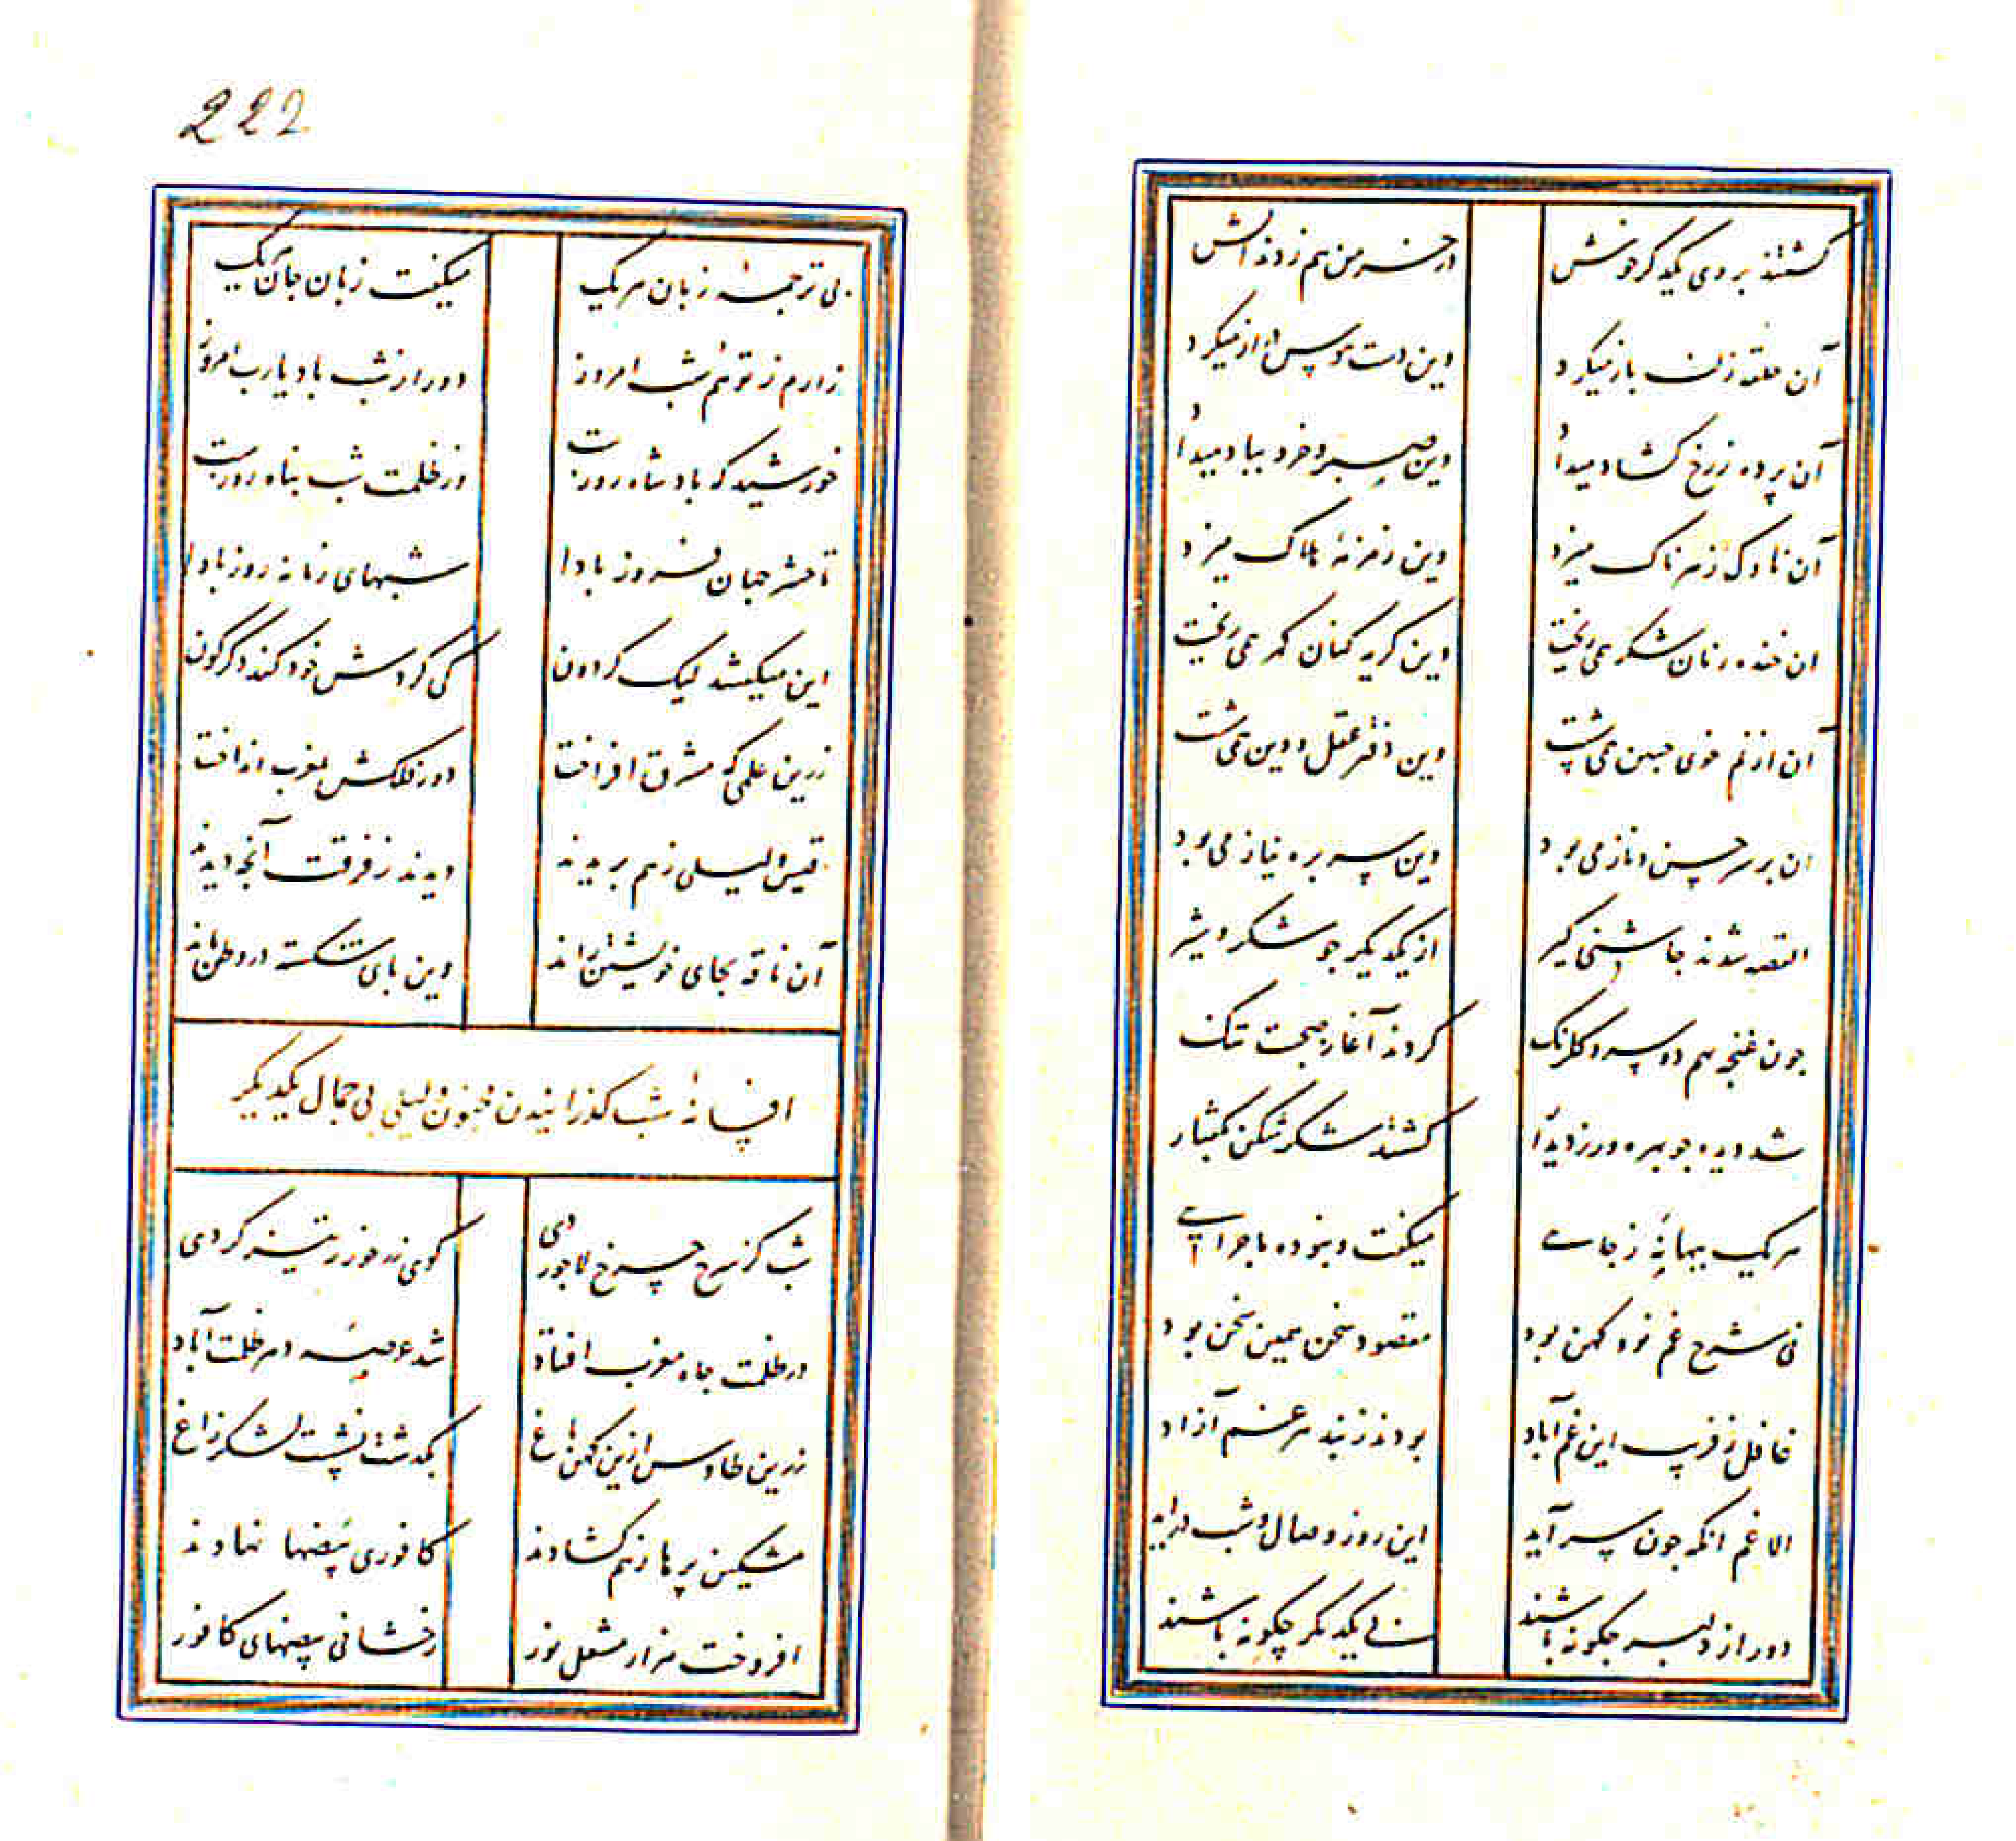 گشتند بروی یکدگر خوش
در خرمن هم زدند آتش
آن حلقه زلف باز میکرد
وین دست هوس دراز میکرد
آن پرده ز رخ گشاد میداد
وین صبر و خرد بباد میداد
آن ناوک زهرناک میزد
وین زمزمهٔ هلاک میزد
ان خنده زنان شکر همی ریخت
وین گریه کنان گهر همی ریخت
آن از نم خوی جبین همی شست
وین دفتر عقل و دین همی شست
ان بر سر حسن و ناز می بود
وین سر بره نیاز می بود
القصه شدند چاشنی گیر
از یکدیگر چو شکر و شیر
چون غنچه بهم دو سرو گلرنگ
کردند آغاز صحبت تنگ
شد دیده چو بهره ور ز دیدار
گشتند شکر شکن بگفتار
هر یک ببهانهٔ ز جایی
میگفت و نبوده ماجرایی
نی شرح غم نو و کهن بود
مقصود سخن همین سخن بود
غافل ز فریب این غم آباد
بودند ز بند هر غم آزاد
الا غم انکه چون سر آید
این روز وصال و شب درآید
دور از دلبر چگونه باشند
بی یکدیگر چگونه باشند
222
بی ترجمهٔ زبان هر یک
میگفت زبان جان هر یک
زارم ز توهم شب امروز
دور از شب باد یارب امروز
خورشید که پادشاه روزست
در ظلمت شب پناه روزست
تا حشر جهان فروز بادا
شبهای زمانه روز بادا
این میگفتند لیک گردون
کی گردش خود کند دگرگون
زرین علمی که مشرق افراخت
دور فلکش بمغرب انداخت
قیس و لیلی ز هم بریدند
دیدند ز فرقت آنچه دیدند
آن ناقه بجای خویشتن راند
وین پای شکسته در وطن ماند
افسانهٔ شب گذرانیدن مجنون و لیلی بی جمال یکدیگر
شب کز سر چرخ لاجوردی
گوی زر خور ز تیز گردی
در ظلمت چاه مغرب افتاد
شد عرصهٔ دهر ظلمت آباد
زرین طاوس ازین کهن باغ
بگذشت و نشست لشکر زاغ
مشکین پرها ز هم گشادند
کافوری بیضها نهادند
افروخت هزار مشعل نور
رخشانی بیضهای کافور